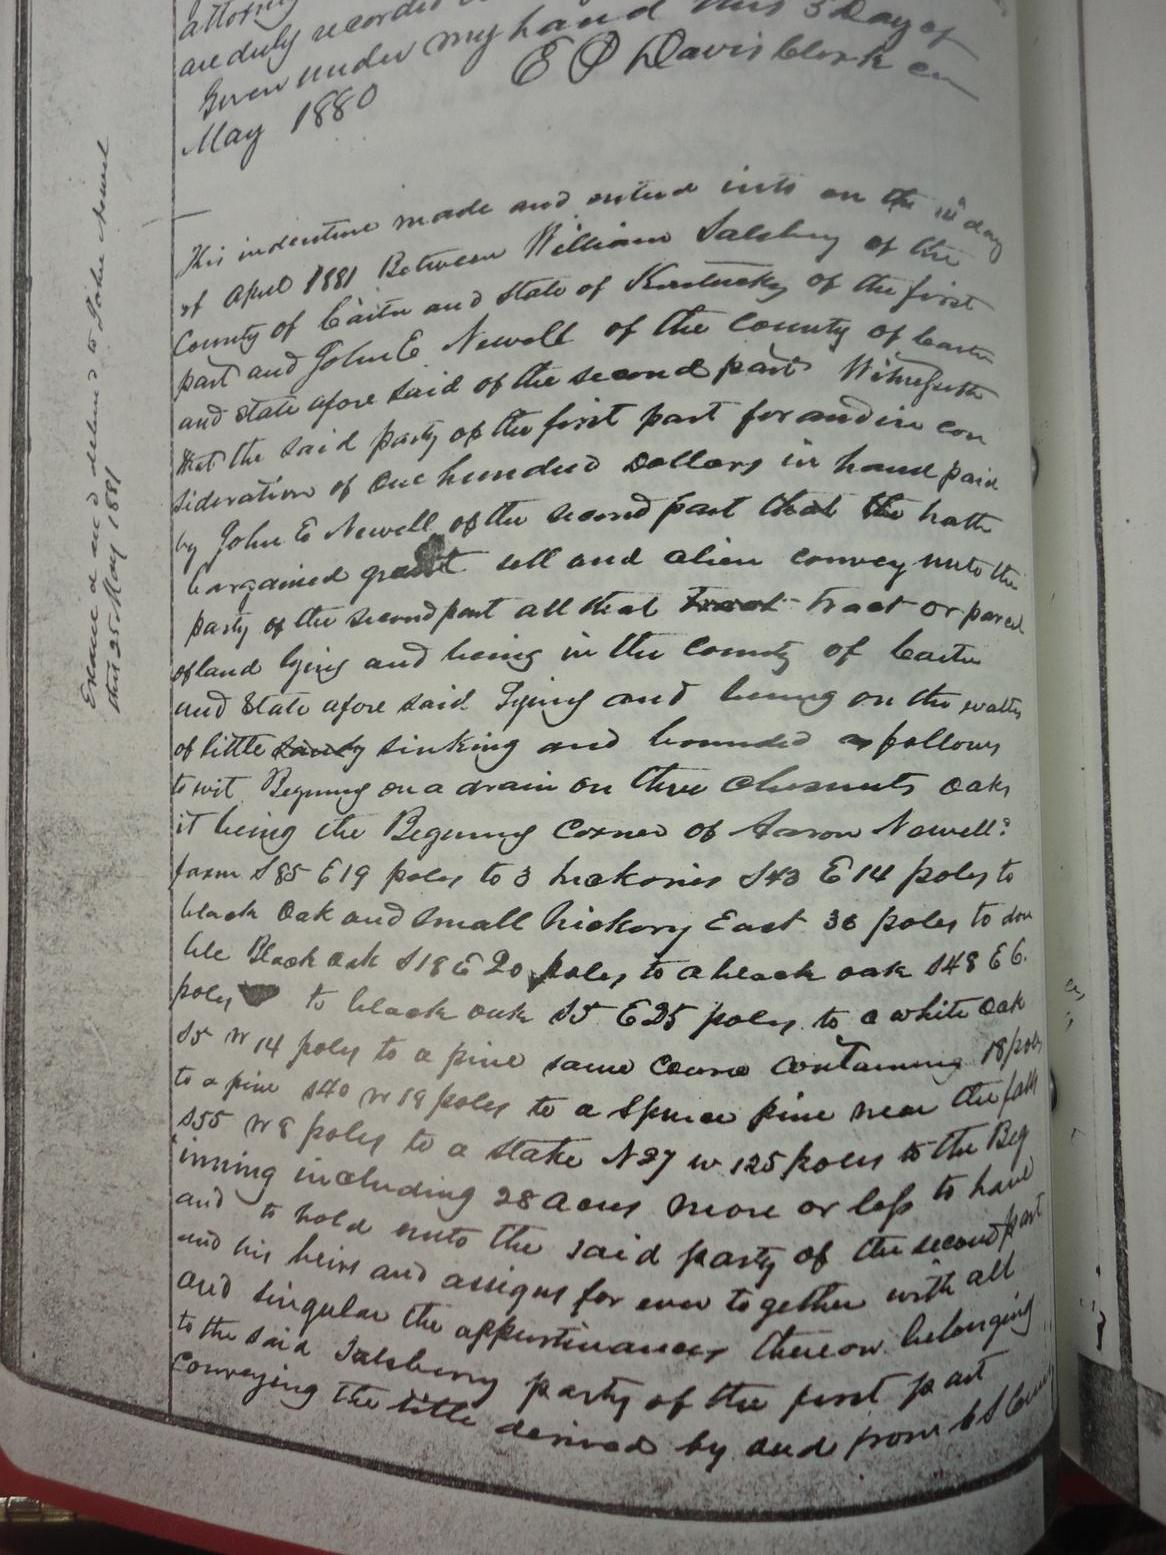 attorney
are duly recorded
Given under my hand this 3 Day of
May 1880 E P Davis Clerk
This indenture made and enterd into on the day
of April 1881 Between William Salsbery of the
County of Carter and State of Kentucky of the first
part and John E Newell of the County of Carter
and State afore said of the second part Witnesseth
that the said party of the first part for and in con
sideration of one hundred Dollars in hand paid
by John E Newell of the second part that the hath
bargained grant sell and alien convey unto the
party of the second part all that Tract Tract or parcel
of land lying and being in the County of Carter
and State afore said Lying and being on the watters
of little sandy sinking and bounded as follows
to wit Begining on a drain on three Chesnuts Oaks
it being the Begining Corner of Aaron Newell's
farm S 85 E 19 poles to 3 hickories S 43 E 14 poles to
black Oak and small hickory East 36 poles to dou
ble Black oak S 18 E 20 poles to a black oak S 48 E 6
poles to black oak S 5 E 25 poles to a white Oak
S 5 W 14 poles to a pine same course containing 18 poles
to a pine S 40 W 19 poles to a Spruce pine near the falls
S 55 W 8 poles to a stake N 27 W 125 poles to the Beg
inning including 28 acres more or less to have
and to hold unto the said party of the second part
and his heirs and assigns for ever together with all
and singular the appurtinances thereon belonging
to the said Salsberry party of the first part
Conveying the title derived by and from
Examined and deliverd to John Newel
this 25 May 1881